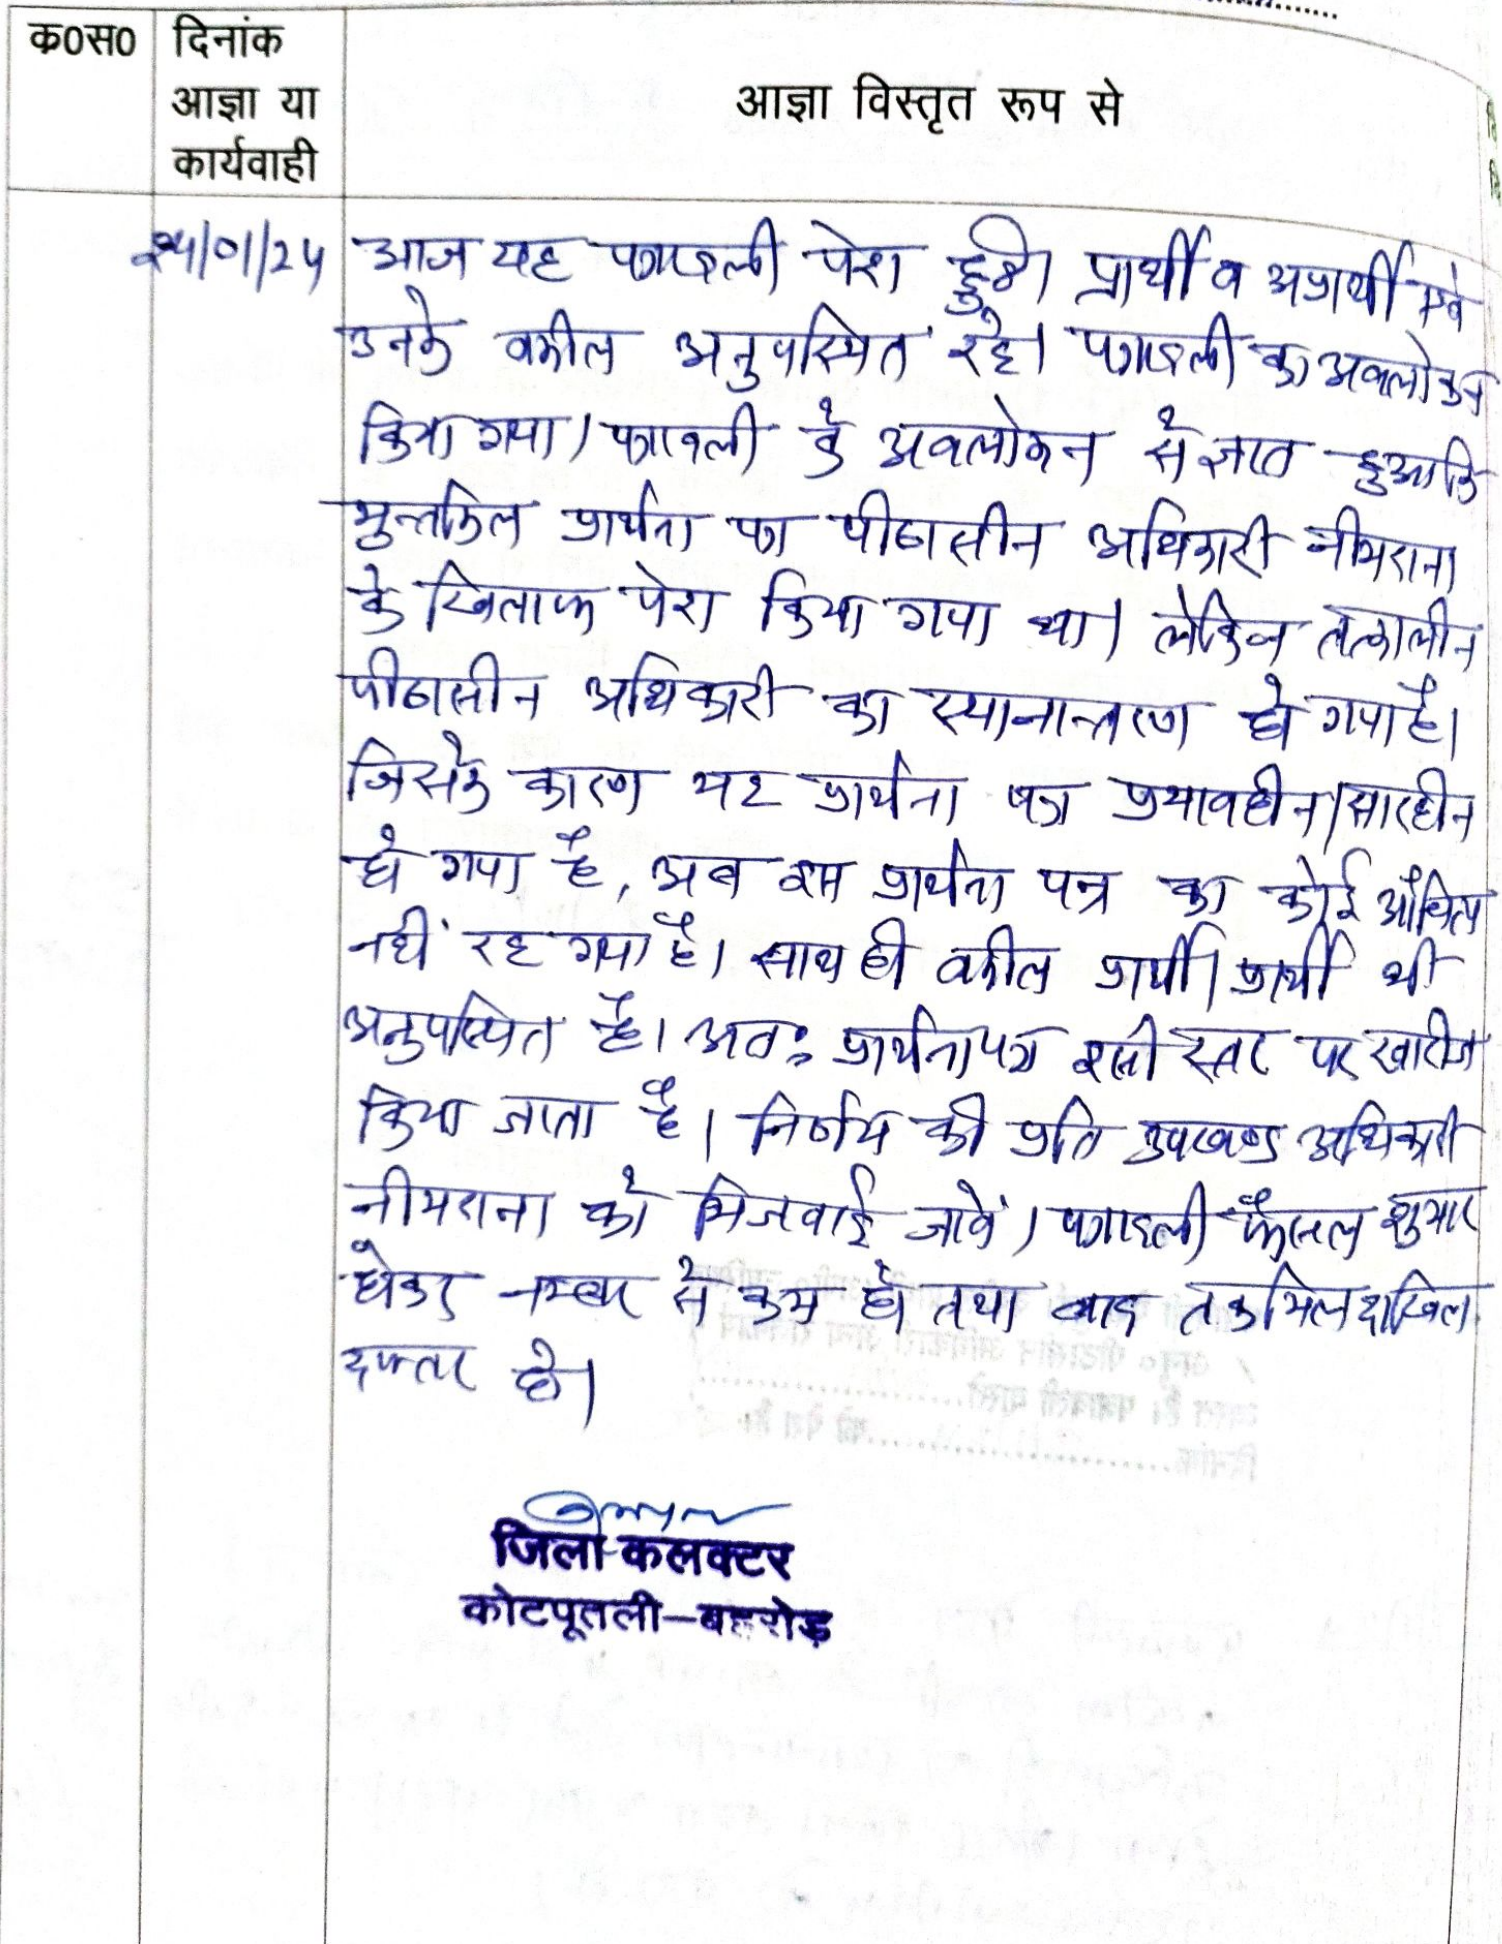 क0स0
दिनांक
आज्ञा या
कार्यवाही
आज्ञा विस्तृत रूप से
24/01/25
आज यह पत्रावली पेश हुई। प्रार्थी व अप्रार्थी एवं
उनके वकील अनुपस्थित रहे। पत्रावली का अवलोकन
किया गया। पत्रावली के अवलोकन से ज्ञात हुआ कि
मुन्तकिल प्रार्थना पत्र पीठासीन अधिकारी नीमराना
के खिलाफ पेश किया गया था। लेकिन तत्कालीन
पीठासीन अधिकारी का स्थानान्तरण हो गया है।
जिसके कारण यह प्रार्थना पत्र प्रभावहीन/सारहीन
हो गया है, अब इस प्रार्थना पत्र का कोई औचित्य
नहीं रह गया है। साथ ही वकील प्रार्थी/प्रार्थी भी
अनुपस्थित है। अतः प्रार्थना पत्र इसी स्तर पर खारीज
किया जाता है। निर्णय की प्रति उपखण्ड अधिकारी
नीमराना को भिजवाई जावें। पत्रावली फैसल शुमार
होकर नम्बर से कम हो तथा बाद तकमिल दाखिल
दफ्तर हो।
जिला कलक्टर
कोटपूतली–बहरोड़